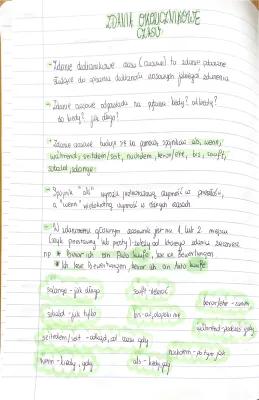 ZDANIA OKOLICZNIKOWE
CZASU
Zdanie okolicznikowe czasu (czasowe) to zdanie poboczne
służące do opisania dokładności czasowych jakiegoś zdarzenia
Zdanie czasowe odpowiada na pytania kiedy? od kiedy?
do kiedy? jak długo?
Zdanie czasowe buduje się za pomocą spójników als, wenn,
während, seitdem/seit, nachdem, bevor/ehe, bis, sooft,
sobald, solange
Spójnik "als" wyraża jednorazową czynność w przeszłości,
a "wenn" wielokrotną czynność w różnych czasach
W zdaniu głównym czasownik jest na 1 lub 2 miejscu
(szyk przestawny lub prosty) zależy od którego zdania zaczniesz
np * Bevor ich ein Auto kaufe, lese ich Bewertungen
* Ich lese Bewertungen, bevor ich ein Auto kaufe
solange - jak długo
sooft - ilekroć
bevor/ehe - zanim
sobald - jak tylko
bis - aż, dopóki nie
während - podczas gdy
seitdem/seit - odkąd, od czasu gdy
nachdem - po tym jak
wenn - kiedy, gdy
als - kiedy, gdy